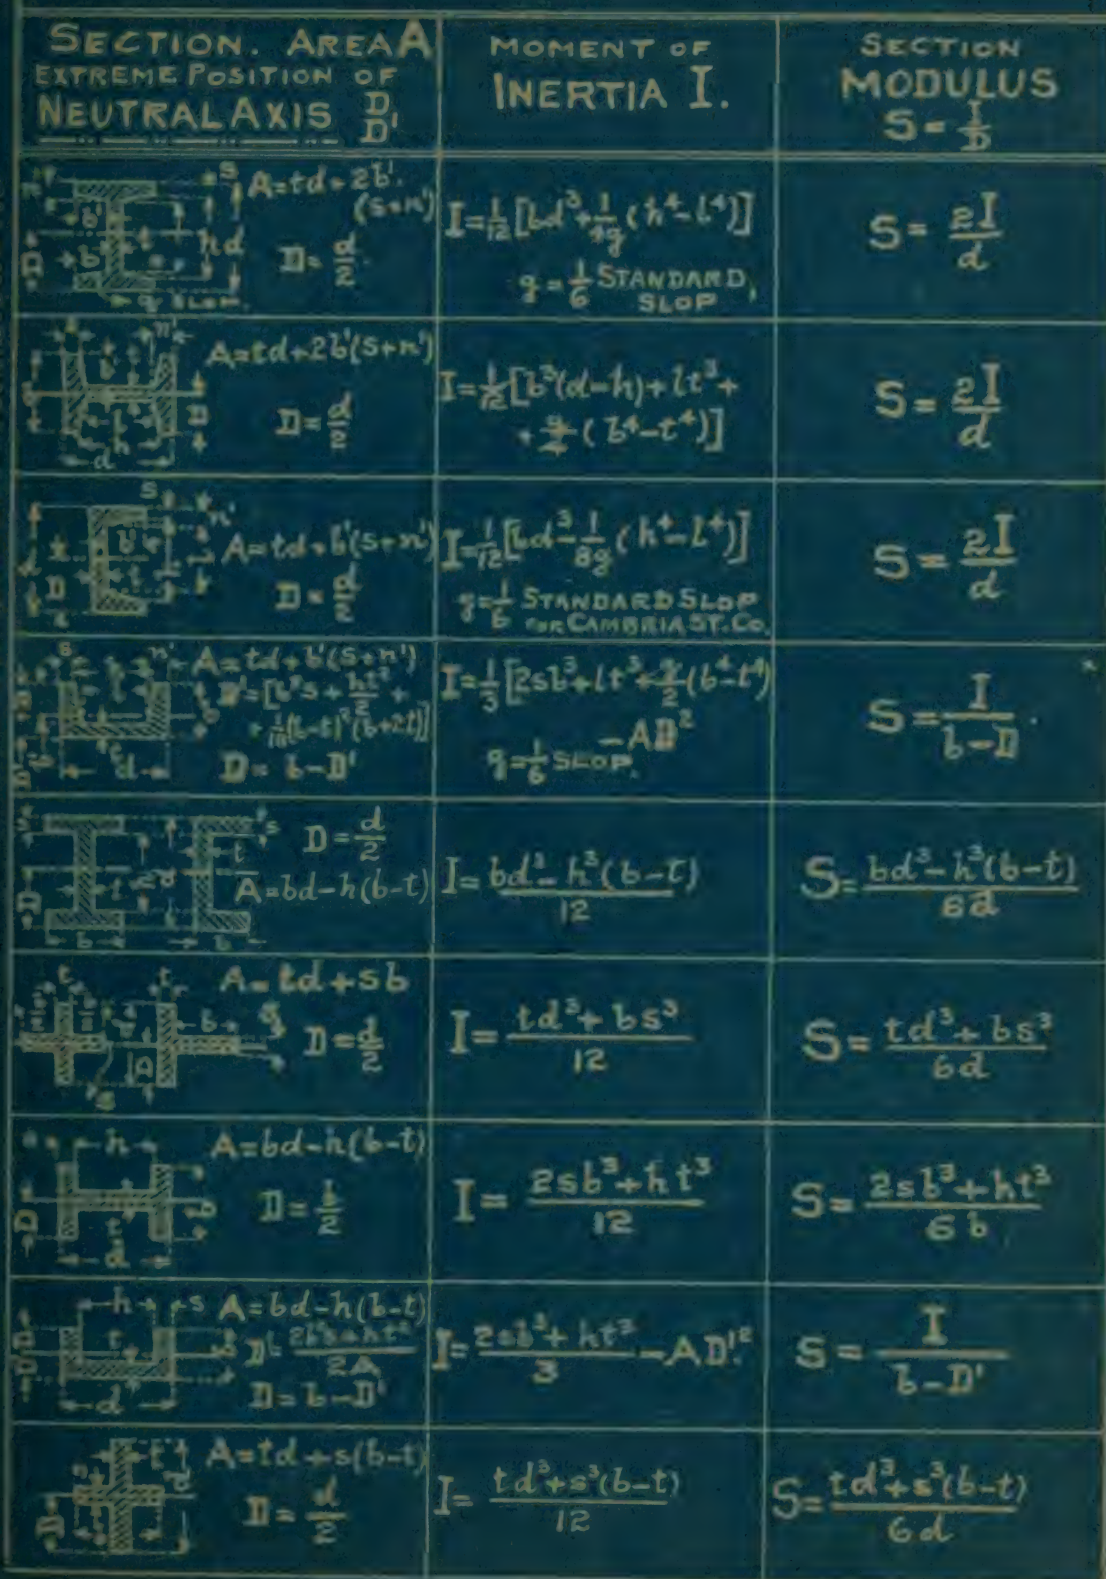 SECTION. AREA A
EXTREME POSITION OF
NEUTRAL AXIS D/D'
MOMENT OF
INERTIA I.
SECTION
MODULUS
S = I/D
A=td+2b'
(s+n')
D= d/2
I=1/12[bd³+1/4g(h⁴-l⁴)]
g=1/6 STANDARD,
SLOP
S= 2I/d
A=td+2b'(s+n')
D=d/2
I=1/12[b³(d-h)+lt³+
+g/4(b⁴-t⁴)]
S=2I/d
A=td+b'(s+n')
D=d/2
I=1/12[bd³-1/8g(h⁴-l⁴)]
g=1/6 STANDARD SLOP
FOR CAMBRIA ST. Co.
S=2I/d
A=td+b'(s+n')
D'=[b²s+ht²/2+
D=b-D'
I=1/3[2sb³+lt³+g/2(b⁴-t⁴)
-AD²
g=1/6 SLOP.
S=I/b-D
D=d/2
A=bd-h(b-t)
I=bd³-h³(b-t)/12
S=bd³-h³(b-t)/6d
A=td+sb
D=d/2
I=td³+bs³/12
S=td³+bs³/6d
A=bd-h(b-t)
D=b/2
I=2sb³+ht³/12
S=2sb³+ht³/6b
A=bd-h(b-t)
D'=2b²s+ht²/2A
D=b-D'
I=2sb³+ht³/3-AD'²
S=I/b-D'
A=td+s(b-t)
D=d/2
I=td³+s³(b-t)/12
S=td³+s³(b-t)/6d